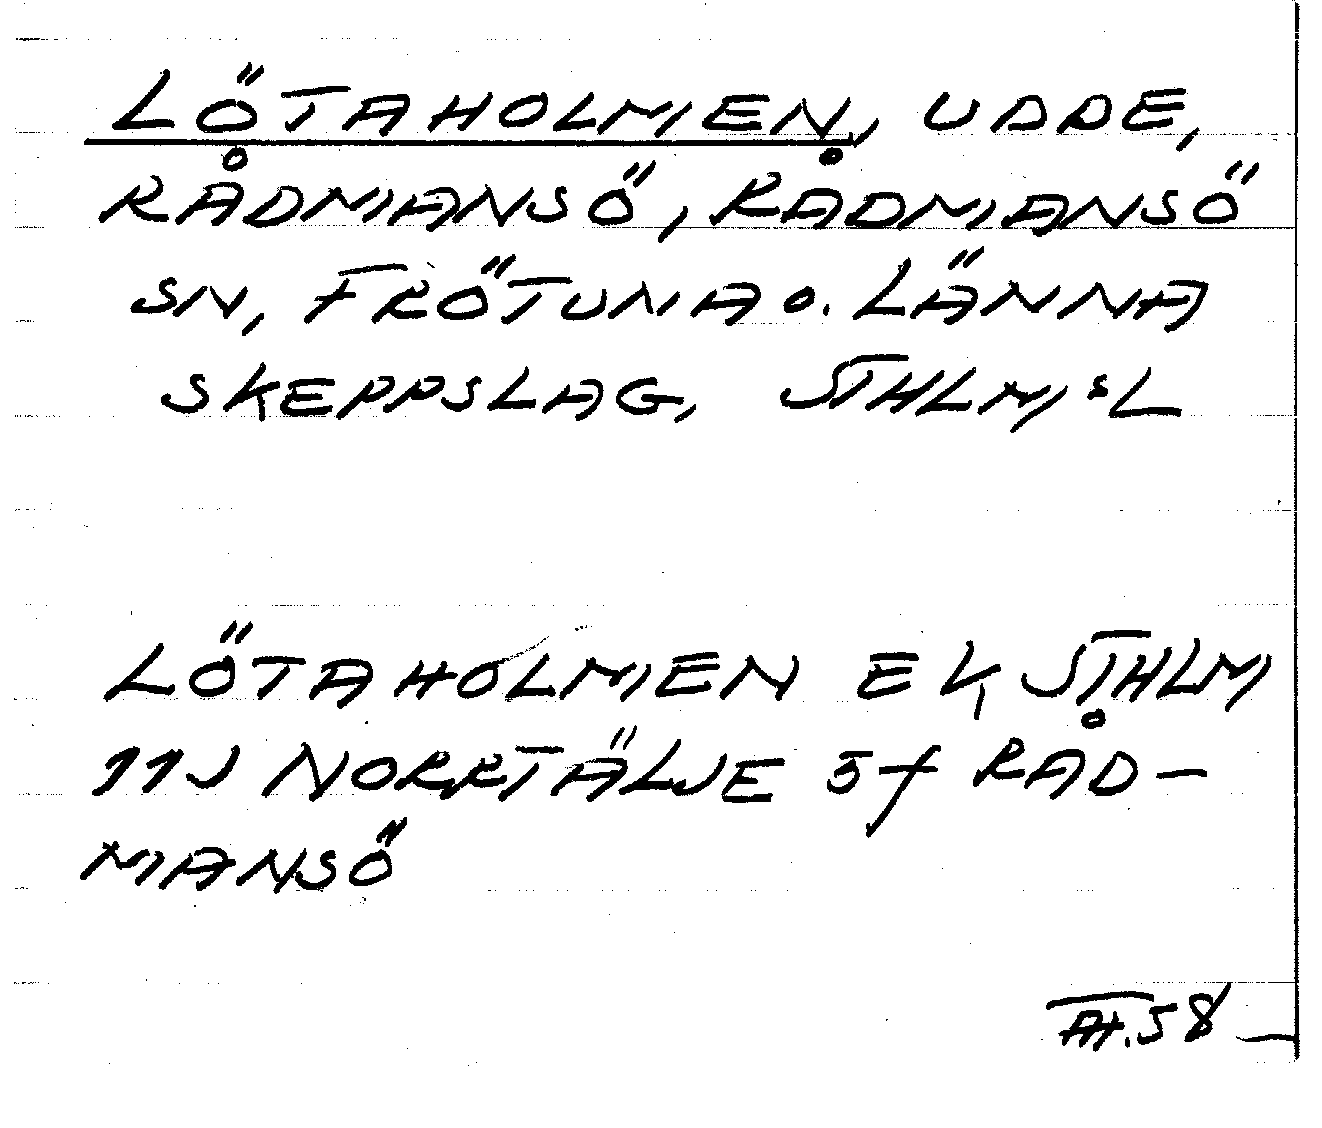 LÖTAHOLMEN, UDDE,
RÅDMANSÖ, RÅDMANSÖ
SN, FRÖTUNA o. LÄNNA
SKEPPSLAG, STHLMSL
LÖTAHOLMEN EK STHLM
11J NORRTÄLJE 5f RÅD-
MANSÖ
58